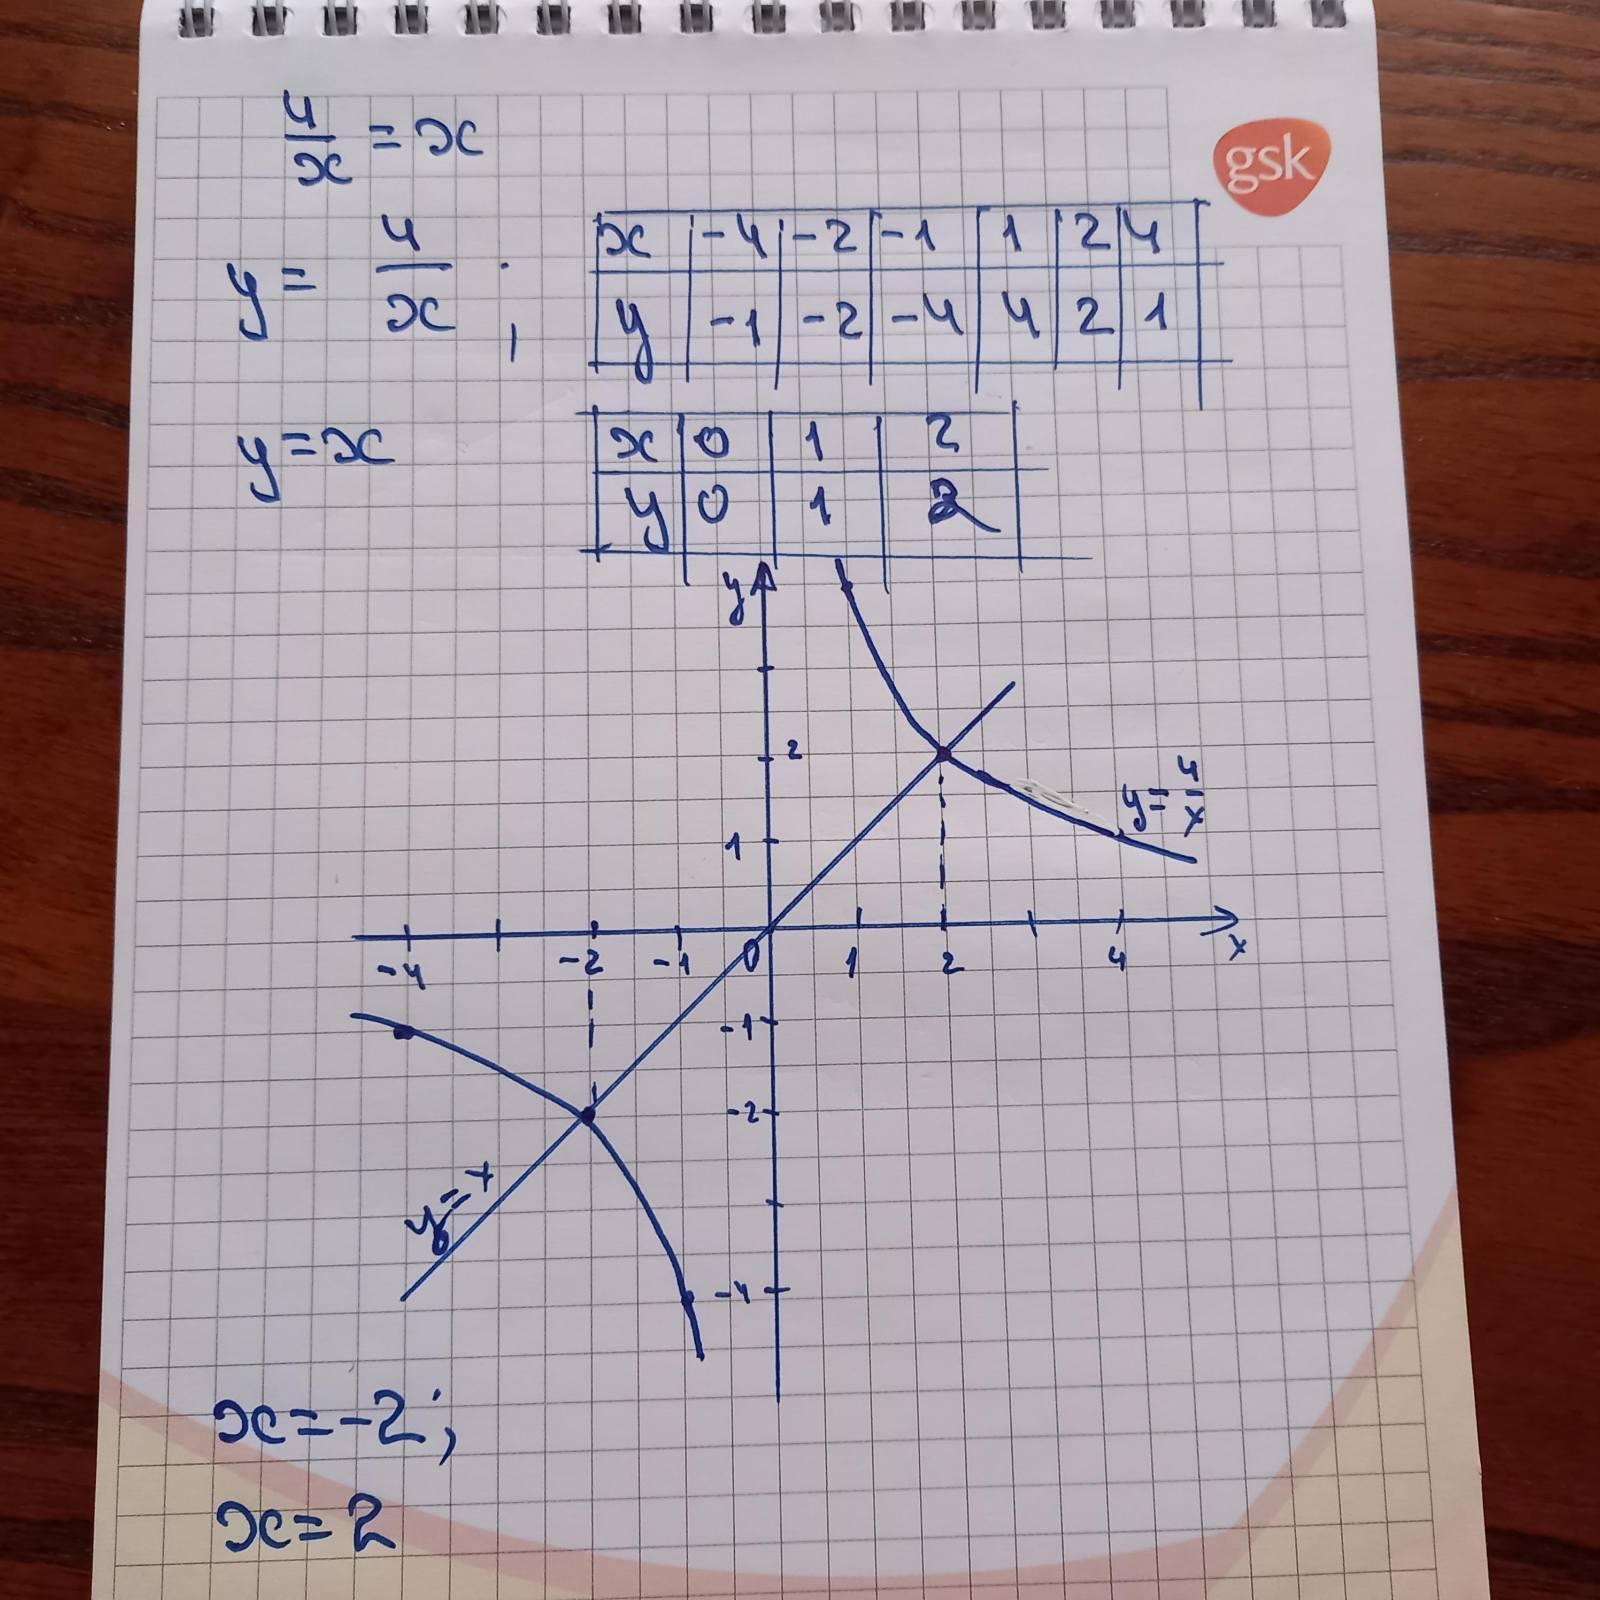 4/x = x
gsk
y = 4/x ;
x | -4 | -2 | -1 | 1 | 2 | 4
y | -1 | -2 | -4 | 4 | 2 | 1
y = x
x | 0 | 1 | 2
y | 0 | 1 | 2
y
2
y = 4/x
1
-4 -2 -1 0 1 2 4 x
-1
-2
y = x
-4
x = -2 ;
x = 2